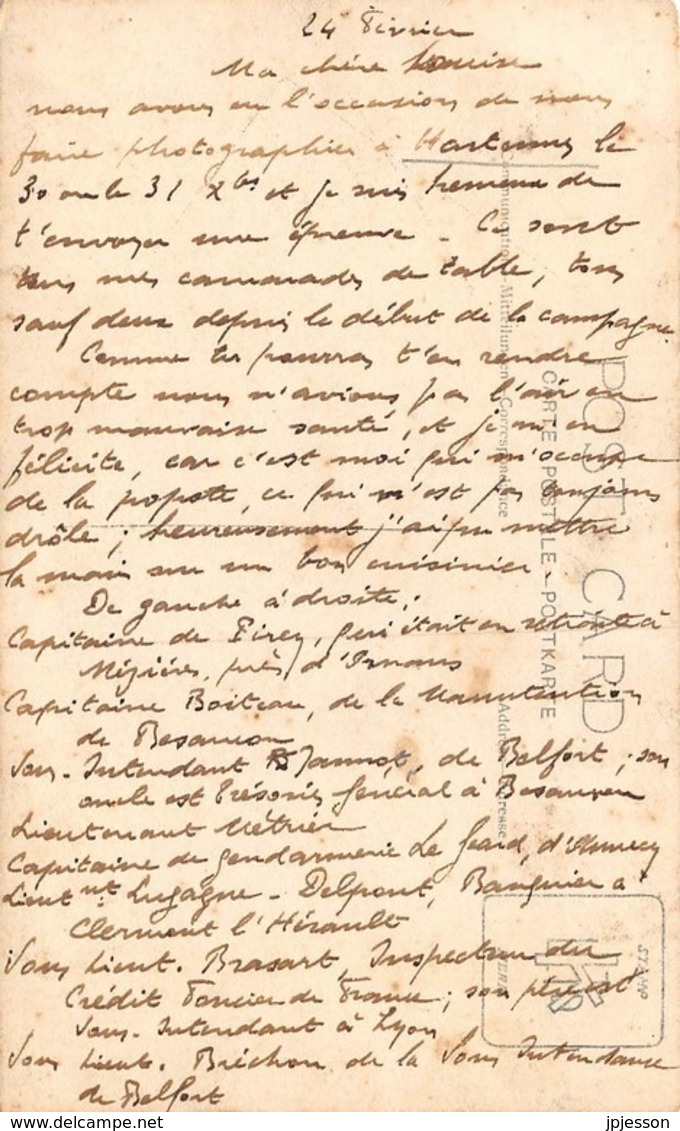 24 Février
Ma chère Louise
nous avons eu l'occasion de nous
faire photographier à Hartennes le
30 ou le 31 Xbre et je suis heureux de
t'envoyer une épreuve - Ce sont
tous mes camarades de table, tous
sauf deux depuis le début de la campagne.
Comme tu pourras t'en rendre
compte nous n'avions pas l'air en
trop mauvaise santé, et je m'en
félicite, car c'est moi qui m'occupe
de la popote, ce qui n'est pas toujours
drôle ; heureusement j'ai pu mettre
la main sur un bon cuisinier.
De gauche à droite ;
Capitaine de Pirey, qui était en retraite à
Mézières, près d'Ornans
Capitaine Boiteau, de la Manutention
de Besançon
Sous-Intendant Jannot, de Belfort ; son
oncle est Trésorier Général à Besançon
Lieutenant Métrier
Capitaine de gendarmerie Le Geard, d'Annecy
Lieutnt Lugagne-Delpont, Banquier à
Clermont l'Hérault
Sous Lieut. Brasart, Inspecteur du
Crédit Foncier de France ; son père est
Sous-Intendant à Lyon
Sous Lieut. Bréchon de la Sous Intendance
de Belfort
POST CARD
CARTE POSTALE - POSTKARTE
Communication Mitteilungen - Correspondance
STAMP
delcampe.net
jpjesson